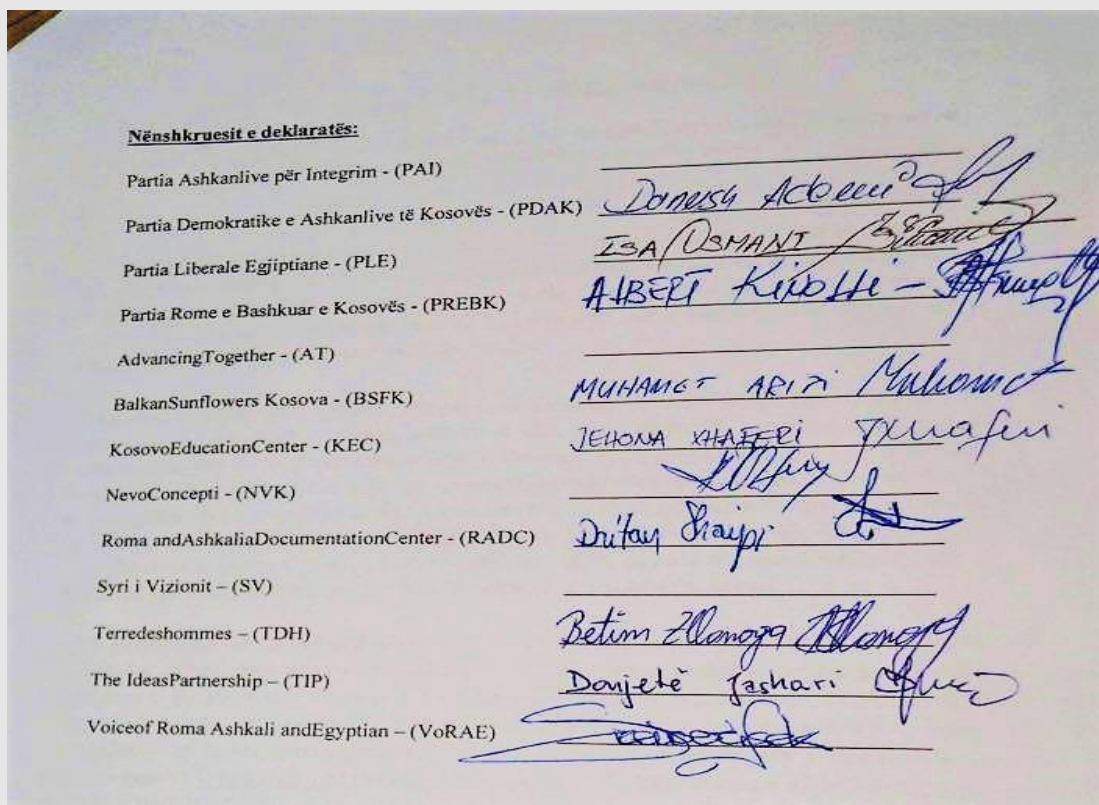 Nënshkruesit e deklaratës:
Partia Ashkanlive për Integrim - (PAI)
Partia Demokratike e Ashkanlive të Kosovës - (PDAK) Danush Ademi
Partia Liberale Egjiptiane - (PLE) ISA OSMANI
Partia Rome e Bashkuar e Kosovës - (PREBK) ALBERT Kinolli -
AdvancingTogether - (AT)
BalkanSunflowers Kosova - (BSFK) MUHAMET ARIFI Muhamet
KosovoEducationCenter - (KEC) JEHONA XHAFERI JXhaferi
NevoConcepti - (NVK)
Roma andAshkaliaDocumentationCenter - (RADC) Dritan
Syri i Vizionit – (SV)
Terredeshommes – (TDH) Betim
The IdeasPartnership – (TIP) Donjetë Jashari
Voiceof Roma Ashkali andEgyptian – (VoRAE)